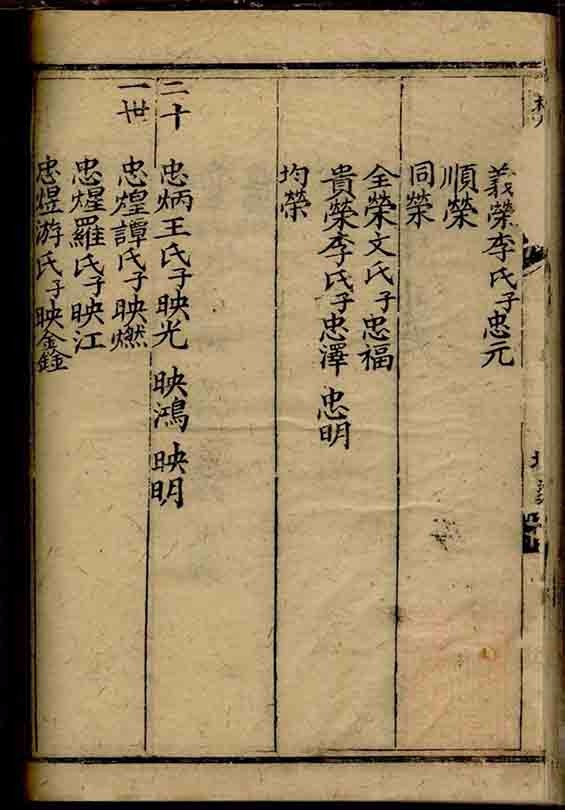 義榮李氏子忠元
順榮
同榮
全榮文氏子忠福
貴榮李氏子忠澤 忠明
均榮
二十 忠炳王氏子映光 映鴻 映明
一世 忠煌譚氏子映燃
忠煋羅氏子映江
忠煜游氏子映鑫